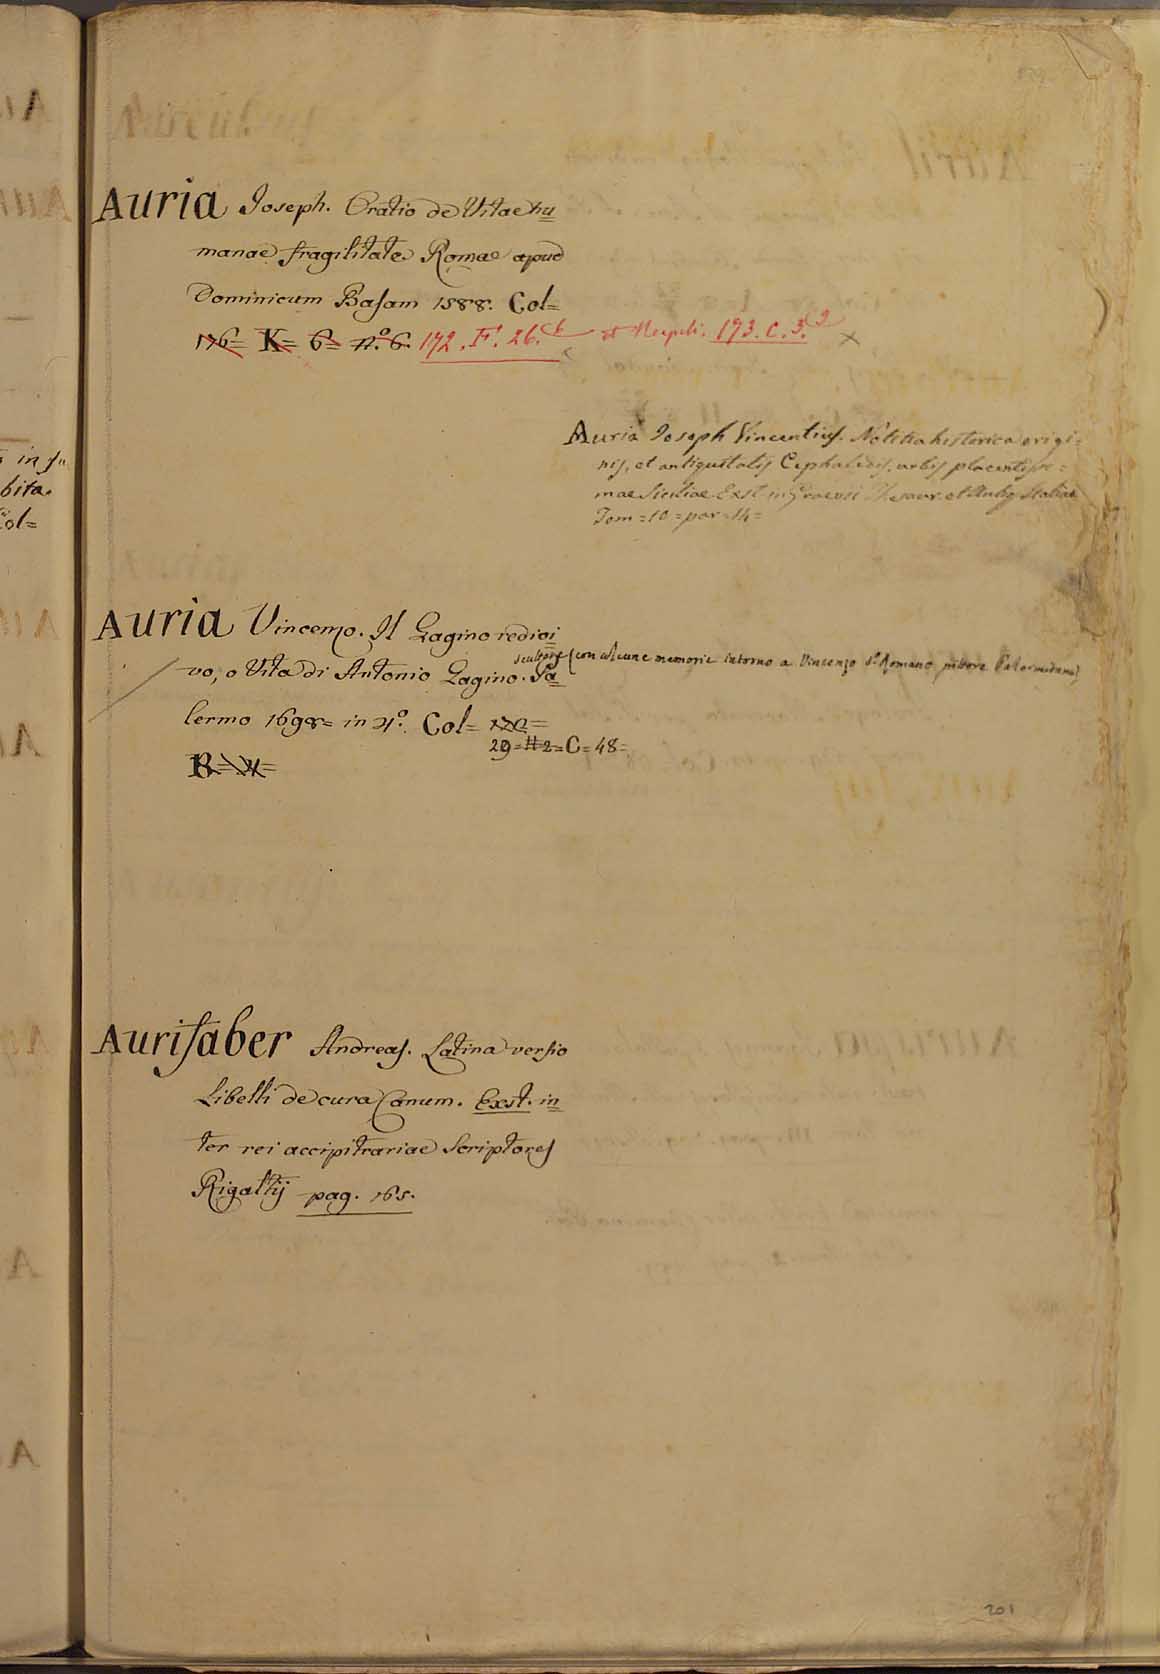 Auria Joseph. Oratio de Vitae hu=
manae fragilitate. Romae apud
Dominicum Basam 1588. Col=
176= K= 6= n.° 6. 172. F. 26.6 et Neapoli. 173. C. 3.2
Auria Joseph Vincentius. Notitia historica origi=
nis, et antiquitatis Cephaledis, urbis placentisse=
mae Siciliae Exst. in Graevii Thesaur. et Antiq Italiae
Tom=10= par=14=
Auria Vincenzo. Il Gagino redivi=
scultore (con alcune memorie intorno a Vincenzo Romano pittore Palermitano)
vo, o Vita di Antonio Gagino. Pa=
lermo 1698= in 4.° Col=
29= H2= C= 48=
B=
Aurifaber Andreas. Latina versio
Libelli de cura Canum. Exst. in=
ter rei accipitrariae Scriptores
Rigaltij pag. 165.
201
in
bita.
Col=